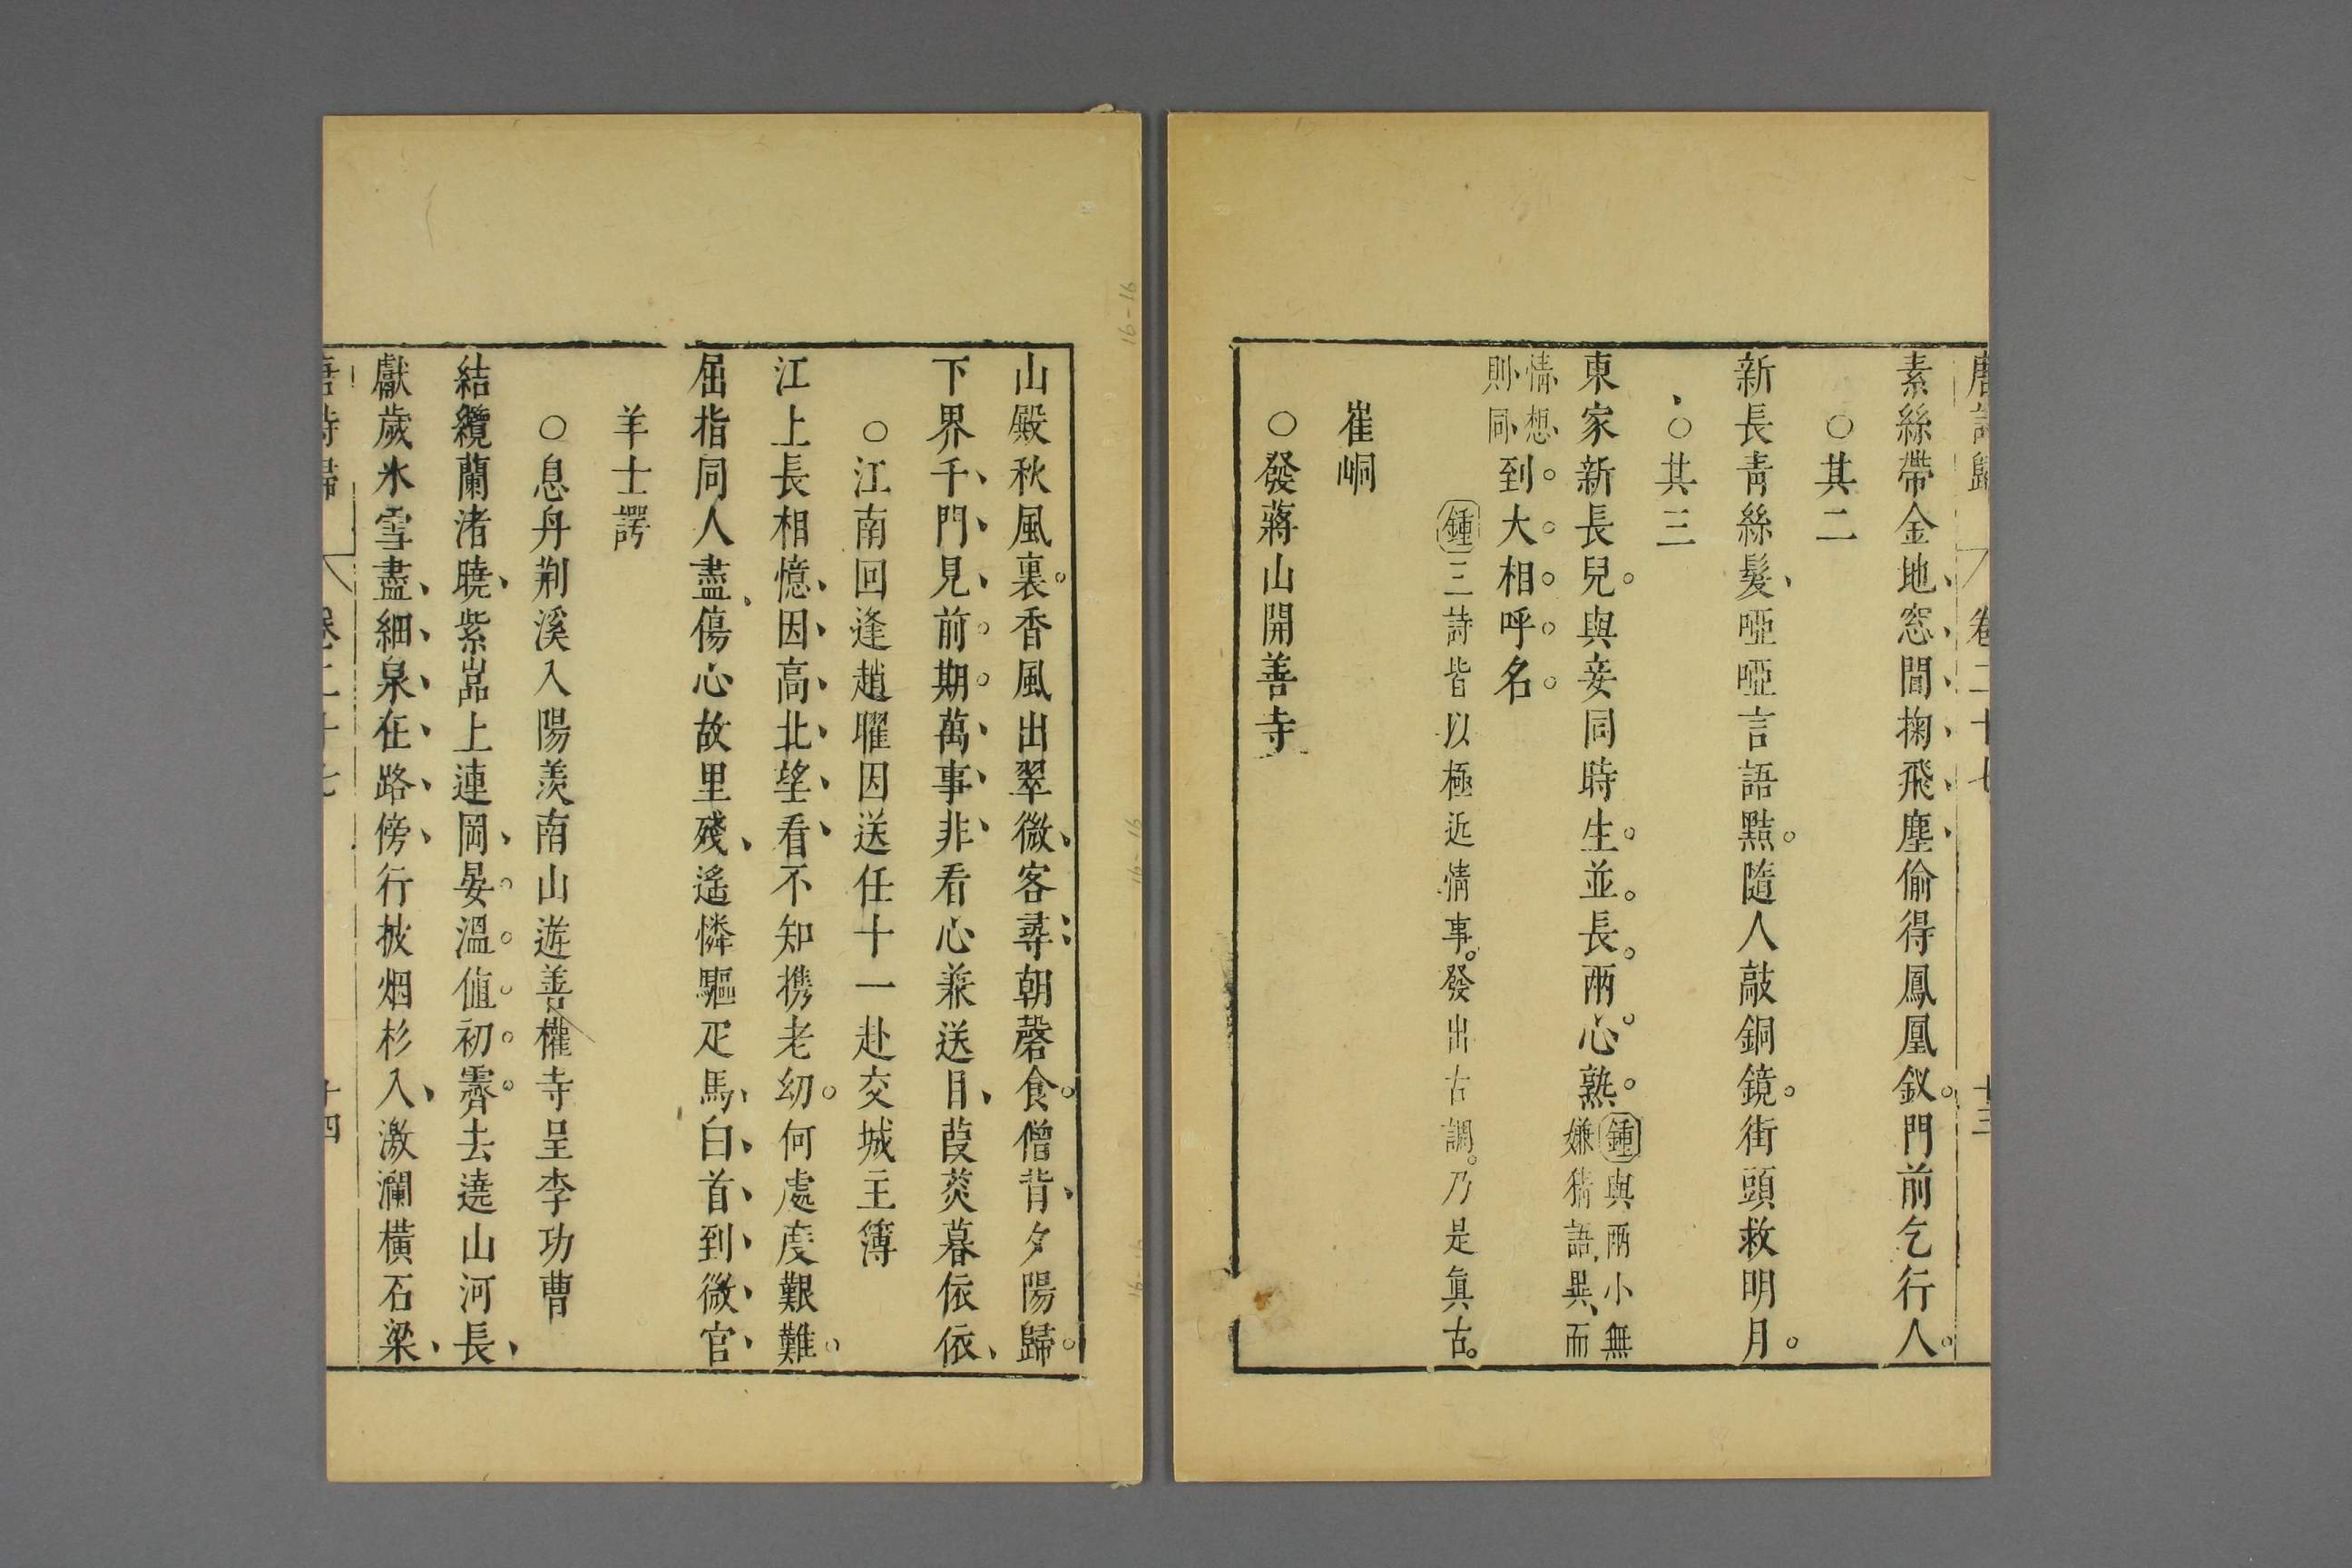 唐詩歸 卷二十七 十三
素絲帶金地窓間掬飛塵偷得鳳凰釵門前乞行人
○其二
新長青絲髮啞啞言語㸃隨人敲銅鏡街頭救明月
○其三
東家新長兒與妾同時生並長兩心熟鍾與兩小無嫌猜語異而
情想則同到大相呼名
鍾三詩皆以極近情事發出古調乃是眞古
崔峒
○發蔣山開善寺
山殿秋風裏香風出翠微客尋朝磬食僧背夕陽歸
下界千門見前期萬事非看心兼送目葭菼暮依依
○江南回逢趙曜因送任十一赴交城主簿
江上長相憶因高北望看不知携老幼何處度艱難
屈指同人盡傷心故里殘遙憐驅疋馬白首到微官
羊士諤
○息舟荆溪入陽羨南山遊善權寺呈李功曹
結纜蘭渚曉紫嵓上連岡晏溫值初霽去遶山河長
獻歲氷雪盡細泉在路傍行披烟杉入激瀾橫石梁
唐詩歸 卷二十七 十四
16-16
16-16